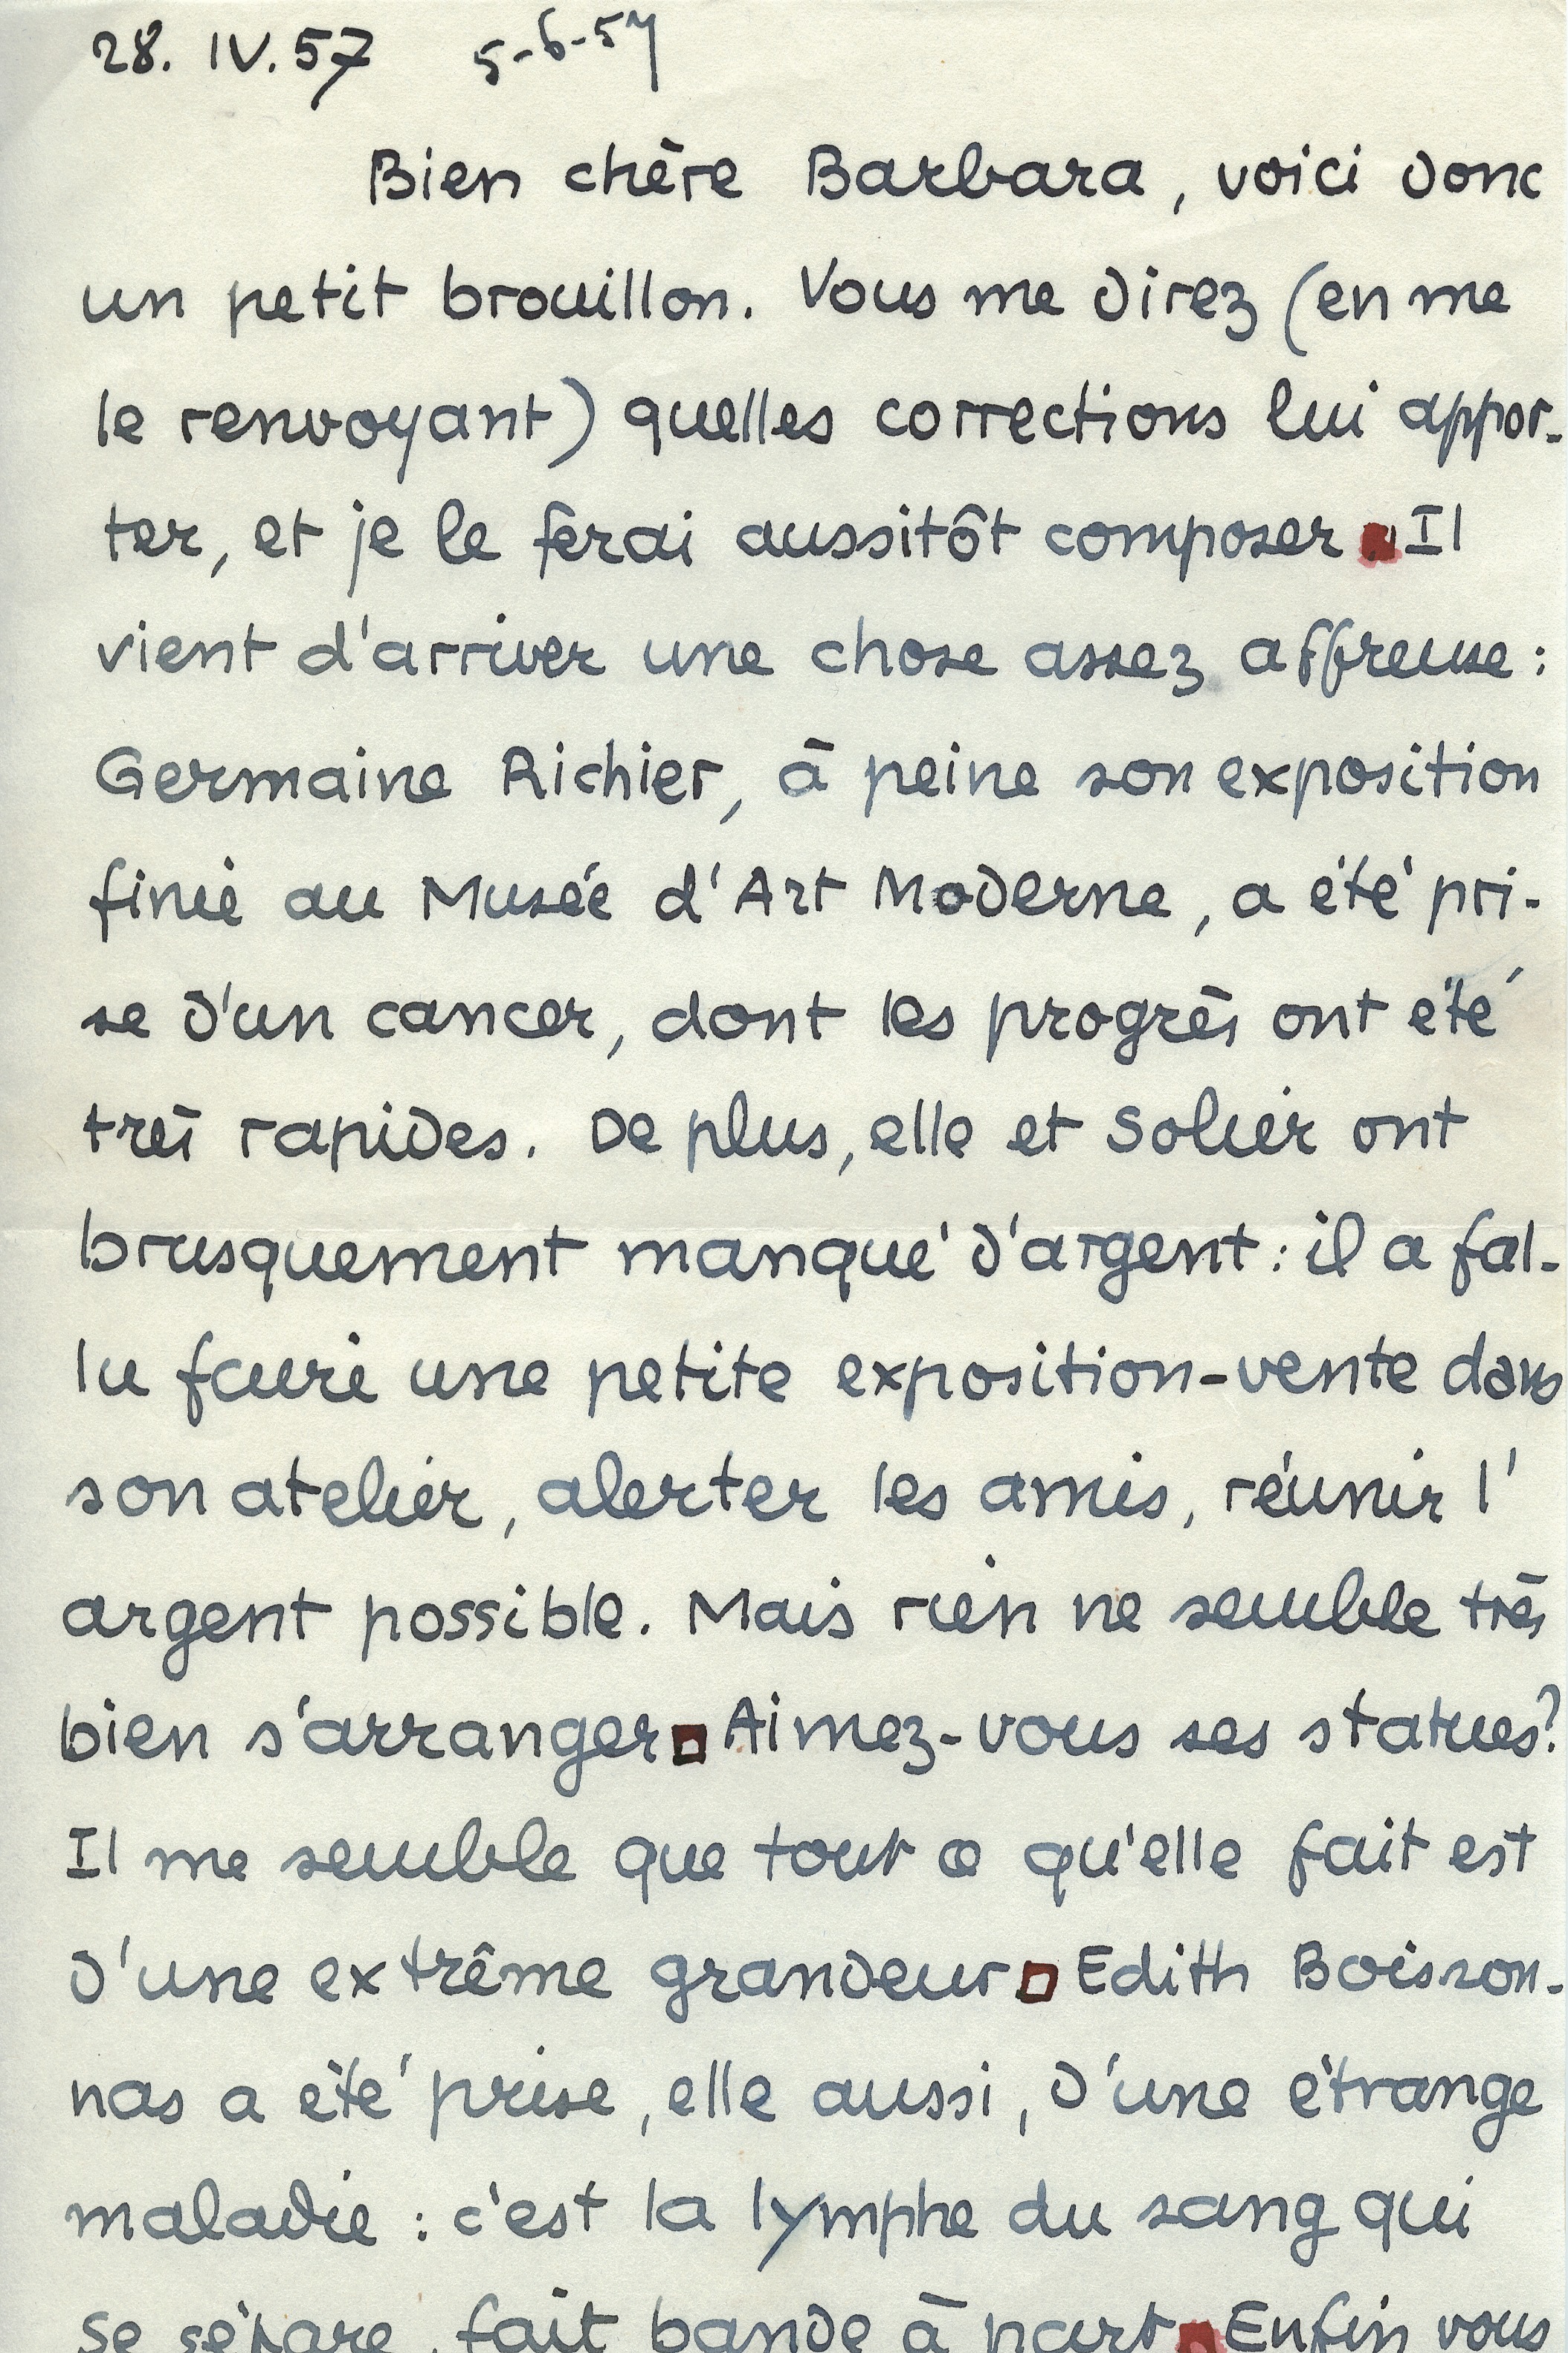 28. IV. 57 5-6-57
Bien chère Barbara, voici donc
un petit brouillon. Vous me direz (en me
le renvoyant) quelles corrections lui appor-
ter, et je le ferai aussitôt composer. Il
vient d'arriver une chose assez affreuse :
Germaine Richier, à peine son exposition
finie au Musée d'Art Moderne, a été pri-
se d'un cancer, dont les progrès ont été
très rapides. De plus, elle et Solier ont
brusquement manqué d'argent : il a fal-
lu faire une petite exposition-vente dans
son atelier, alerter les amis, réunir l'
argent possible. Mais rien ne semble très
bien s'arranger. Aimez-vous ses statues?
Il me semble que tout ce qu'elle fait est
d'une extrême grandeur. Edith Boisson-
nas a été prise, elle aussi, d'une étrange
maladie : c'est la lymphe du sang qui
se sépare, fait bande à part. Enfin vous